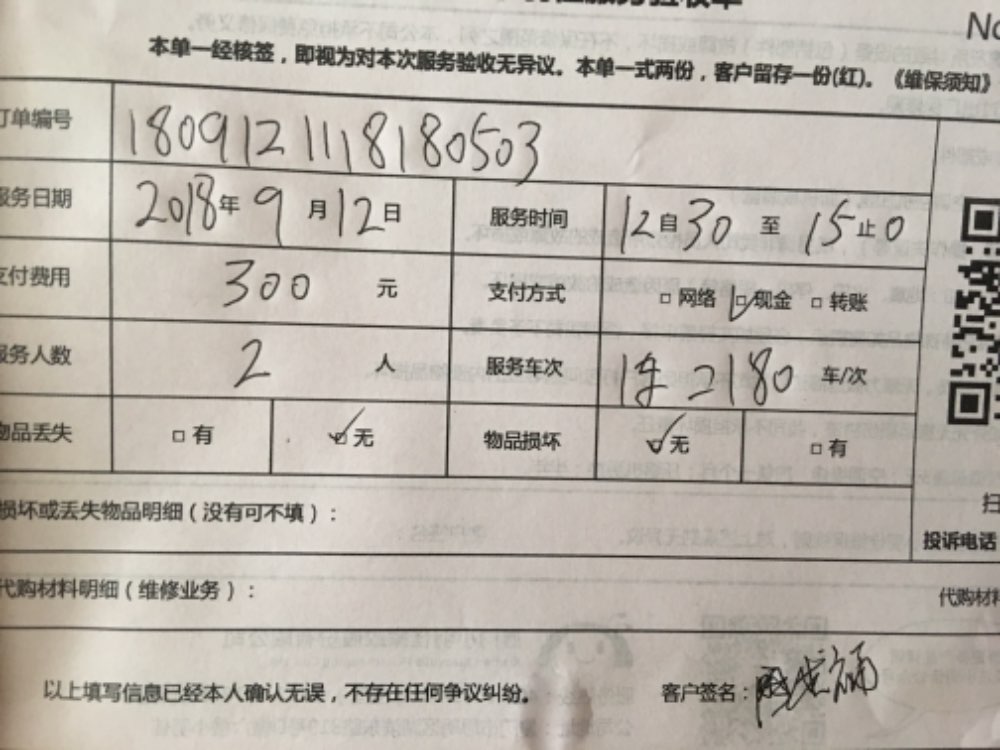 No
本单一经核签，即视为对本次服务验收无异议。本单一式两份，客户留存一份(红)。《维保须知》
订单编号 1809121118180503
服务日期 2018年9月12日 服务时间 12自30至15止0
支付费用 300 元 支付方式 □网络 ☑现金 □转账
服务人数 2 人 服务车次 车/次
物品丢失 □有 ☑无 物品损坏 ☑无 □有
损坏或丢失物品明细（没有可不填）：
扫
投诉电话
代购材料明细（维修业务）：
代购材料
以上填写信息已经本人确认无误，不存在任何争议纠纷。 客户签名：